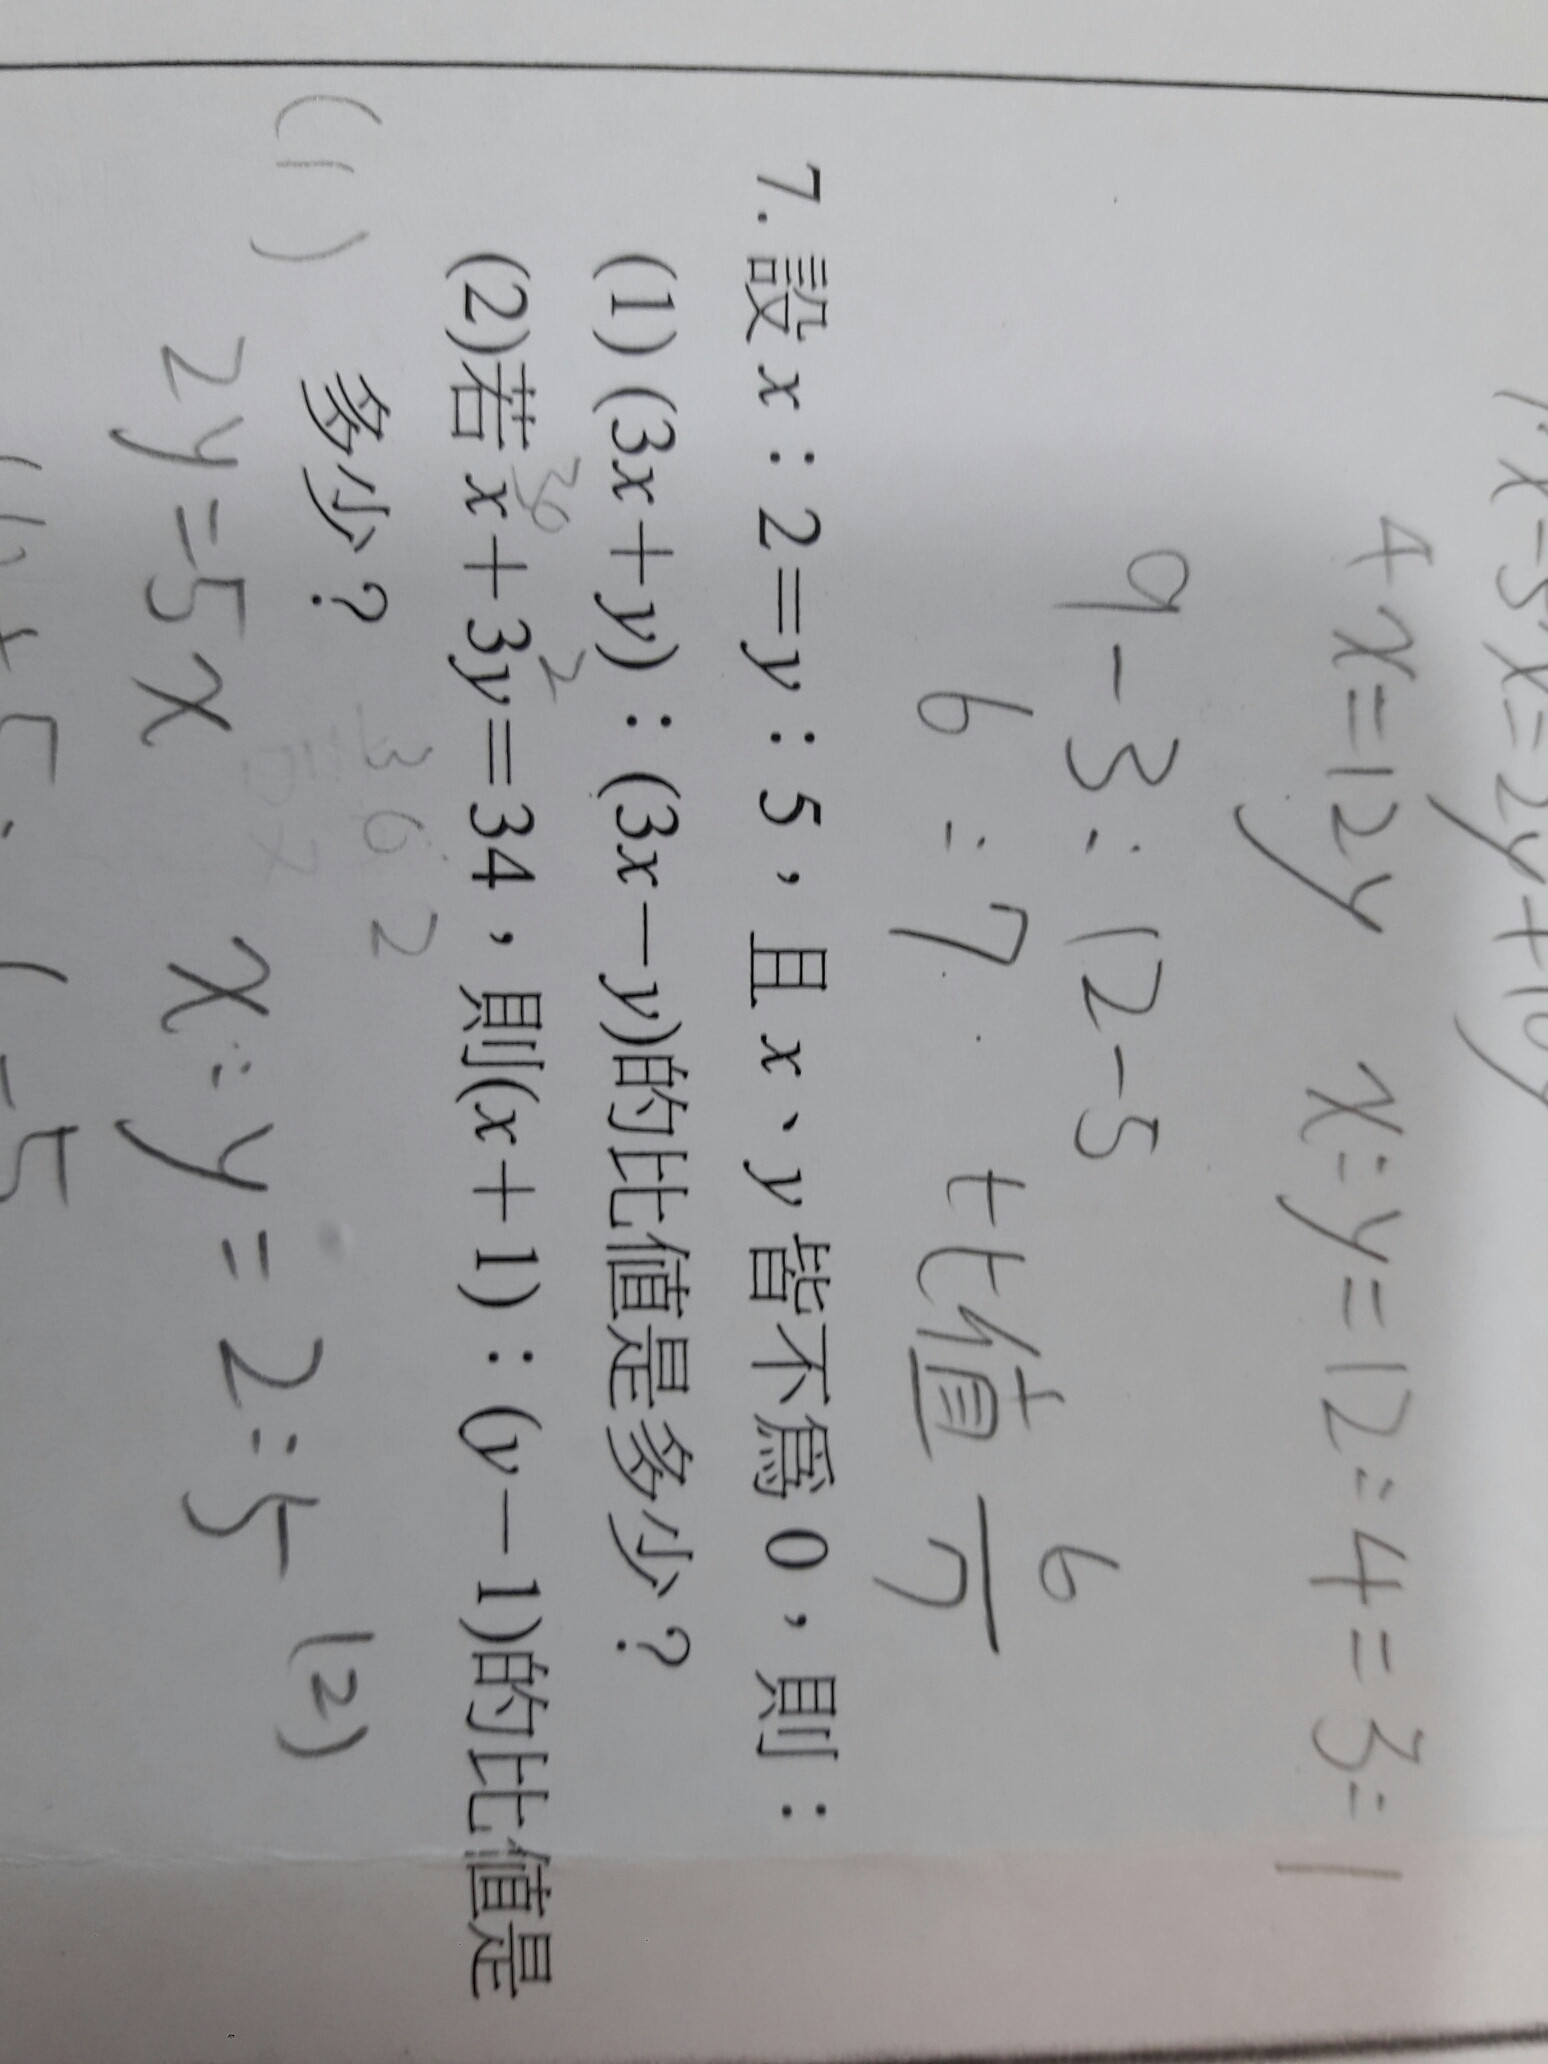 4x=12y x:y=12:4=3:1
9-3:12-5
6:7 比值 6/7
7.設 x：2＝y：5，且 x、y 皆不為 0，則：
(1) (3x＋y)：(3x－y)的比值是多少？
(2)若 x＋3y＝34，則(x＋1)：(y－1)的比值是
多少？
(1)
2y=5x x:y=2:5 (2)